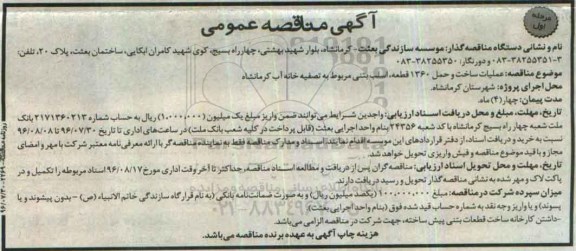 مرحله اول
آگهی مناقصه عمومی
نام و نشانی دستگاه مناقصه گذار: موسسه سازندگی بعثت - کرمانشاه، بلوار شهید بهشتی، چهارراه بسیج، کوی شهید کامران ابکایی، ساختمان بعثت، پلاک ۲۰، تلفن:
۳-۰۸۳-۳۸۲۵۵۳۵۱ و دورنگار: ۳۸۲۵۵۳۵۰-۰۸۳
موضوع مناقصه: عملیات ساخت و حمل ۱۳۶۰ قطعه، نصب بتنی مربوط به تصفیه خانه آب کرمانشاه
محل اجرای پروژه: شهرستان کرمانشاه.
مدت پیمان: چهار (۴) ماه.
تاریخ، مهلت، مبلغ و محل دریافت اسناد ارزیابی: واجدین شرایط می‌توانند ضمن واریز مبلغ یک میلیون (۱۰۰۰۰۰۰) ریال به حساب شماره ۲۱۷۱۳۶۰۲۱۳ بانک
ملت شعبه چهارراه بسیج کرمانشاه با کد شعبه ۲۴۳۵۶ بنام واحد اجرایی بعثت (قابل پرداخت در کلیه شعب بانک ملت) در ساعت‌های اداری تا تاریخ ۹۶/۰۷/۳۰ تا ۹۶/۰۸/۰۸
نسبت به خرید و دریافت اسناد، از دفتر قراردادهای این موسسه اقدام نمایند؛ اسناد و مدارک مناقصه فقط به نماینده مناقصه گر با ارائه معرفی‌نامه معتبر شرکت با مهر و امضای
مجاز و با قید موضوع مناقصه و فیش واریزی تحویل خواهد شد.
تاریخ، مهلت و محل تحویل اسناد ارزیابی: مناقصه گران پس از دریافت و مطالعه اسناد مناقصه، حداکثر تا آخر وقت اداری مورخ ۹۶/۰۸/۱۷ اسناد مربوطه را تکمیل و در
پاکت لاک و مهر شده به نشانی مناقصه گذار تحویل و رسید دریافت دارند.
میزان سپرده شرکت در مناقصه: مبلغ ۱۰۰،۰۰۰،۰۰۰ (یکصد میلیون ریال) و به صورت ضمانت‌نامه بانکی (به نام قرارگاه سازندگی خاتم الانبیاء (ص) - بدون پیشوند و یا
پسوند) و یا واریز وجه نقد به شماره حساب قید شده فوق (بنام واحد اجرایی بعثت)
-داشتن کارخانه ساخت قطعات بتنی پیش ساخته، جهت شرکت در مناقصه الزامی می‌باشد.
هزینه چاپ آگهی به عهده برنده مناقصه می‌باشد.